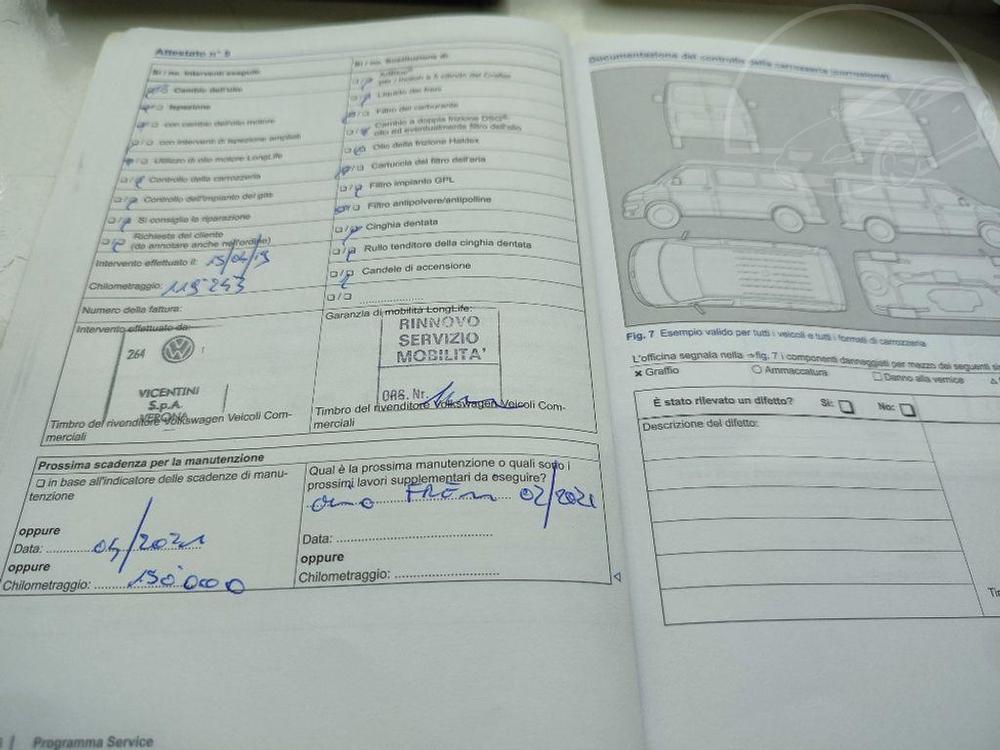 Attestato n° 5
Sì / no. Interventi eseguiti
Cambio dell'olio
Ispezione
con cambio dell'olio motore
con interventi di ispezione ampliati
Utilizzo di olio motore LongLife
Controllo della carrozzeria
Controllo dell'impianto del gas
Si consiglia la riparazione
Richiesta del cliente
(da annotare anche nell'ordine)
Intervento effettuato il: 15/04/19
Chilometraggio: 119 243
Numero della fattura:
Intervento effettuato da:
264
VICENTINI
S.p.A.
VERONA
Timbro del rivenditore Volkswagen Veicoli Com-
merciali
Sì / no. Sostituzione di:
AdBlue®
Liquido dei freni
Filtro del carburante
Cambio a doppia frizione DSG®:
olio ed eventualmente filtro dell'olio
Olio della frizione Haldex
Cartuccia del filtro dell'aria
Filtro impianto GPL
Filtro antipolvere/antipolline
Cinghia dentata
Rullo tenditore della cinghia dentata
Candele di accensione
Garanzia di mobilità LongLife:
RINNOVO
SERVIZIO
MOBILITA'
OAS. Nr.
Timbro del rivenditore Volkswagen Veicoli Com-
merciali
Prossima scadenza per la manutenzione
in base all'indicatore delle scadenze di manu-
tenzione
oppure
Data: 04/2021
oppure
Chilometraggio: 150 000
Qual è la prossima manutenzione o quali sono i
prossimi lavori supplementari da eseguire?
02/2021
Data:
oppure
Chilometraggio:
Programma Service
Documentazione del controllo della carrozzeria (corrosione)
Fig. 7 Esempio valido per tutti i veicoli e tutti i formati di carrozzeria
L'officina segnala nella ⇒fig. 7 i componenti danneggiati per mezzo dei seguenti
× Graffio ○ Ammaccatura □ Danno alla vernice
È stato rilevato un difetto? Sì: No:
Descrizione del difetto: